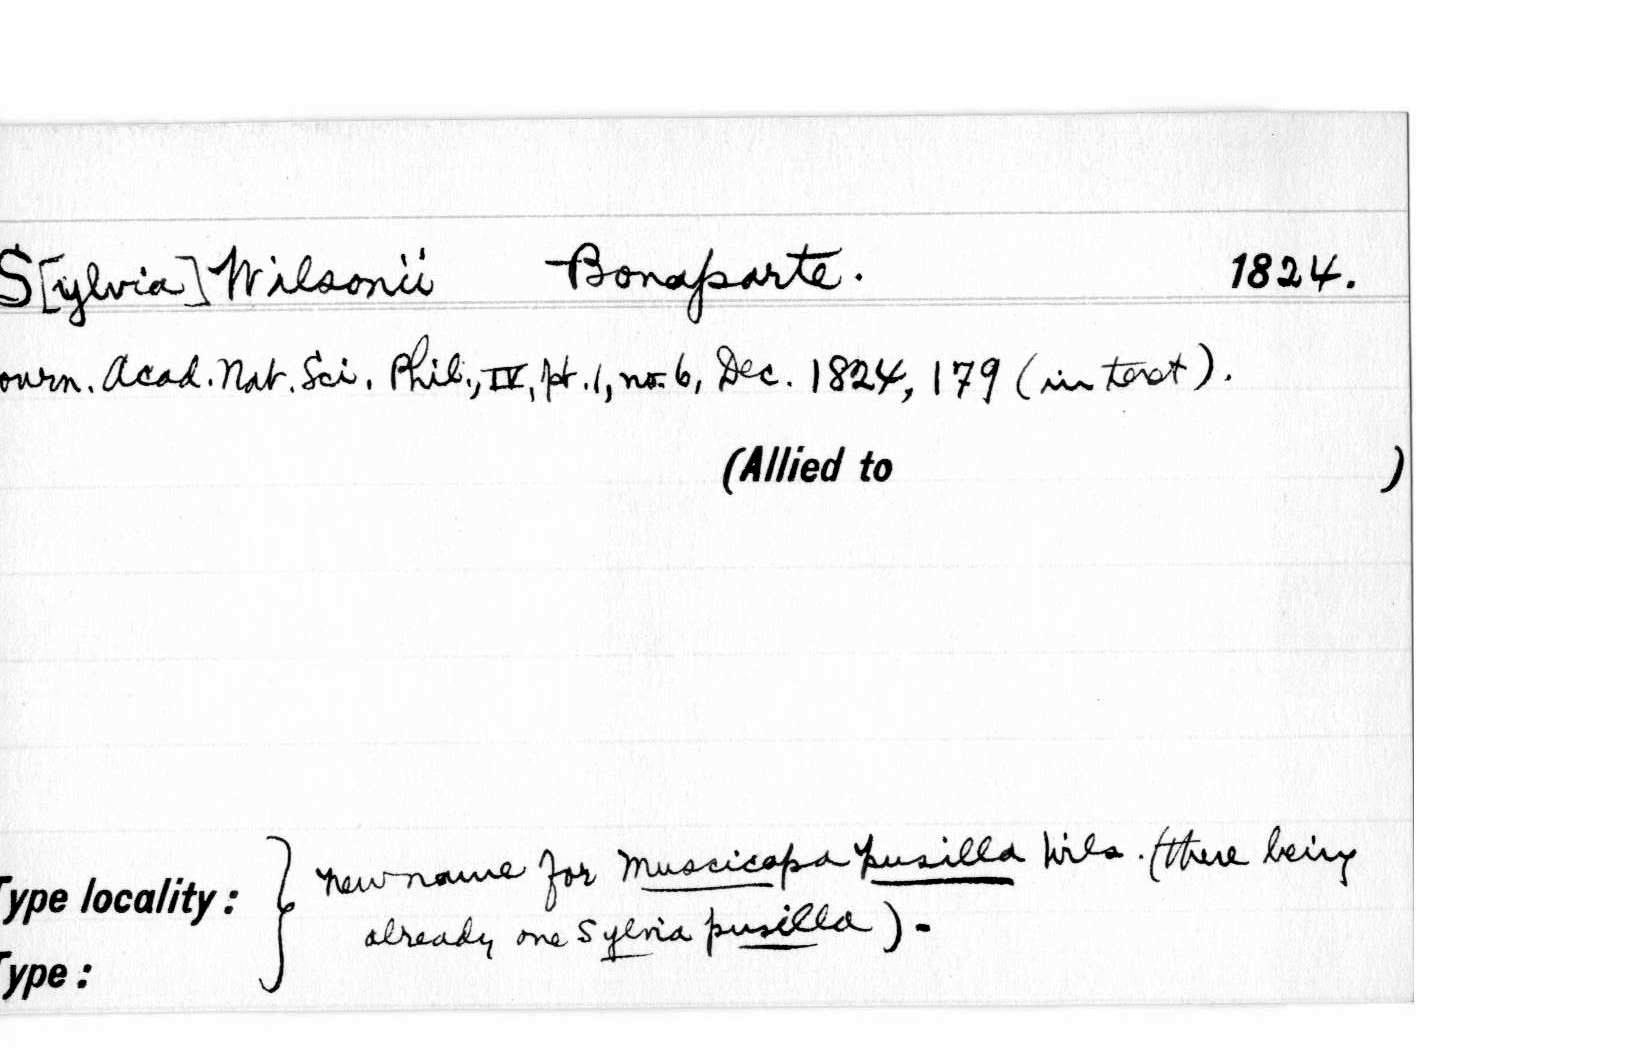 S[ylvia] Wilsonii Bonaparte. 1824.
ourn. Acad. Nat. Sci. Phil., IV, pt. 1, no. 6, Dec. 1824, 179 (in text).
(Allied to )
Type locality : } new name for Muscicapa pusilla Wils. (there being
already one Sylvia pusilla).
Type :